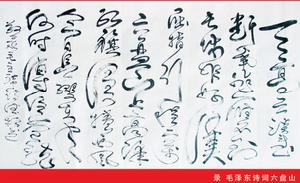 天高云淡望
断南飞雁不到
长城非好汉
屈指行程二万
六盘山上高峰
红旗漫卷西风
今日长缨在手
何时缚住苍龙
录 毛泽东诗词六盘山